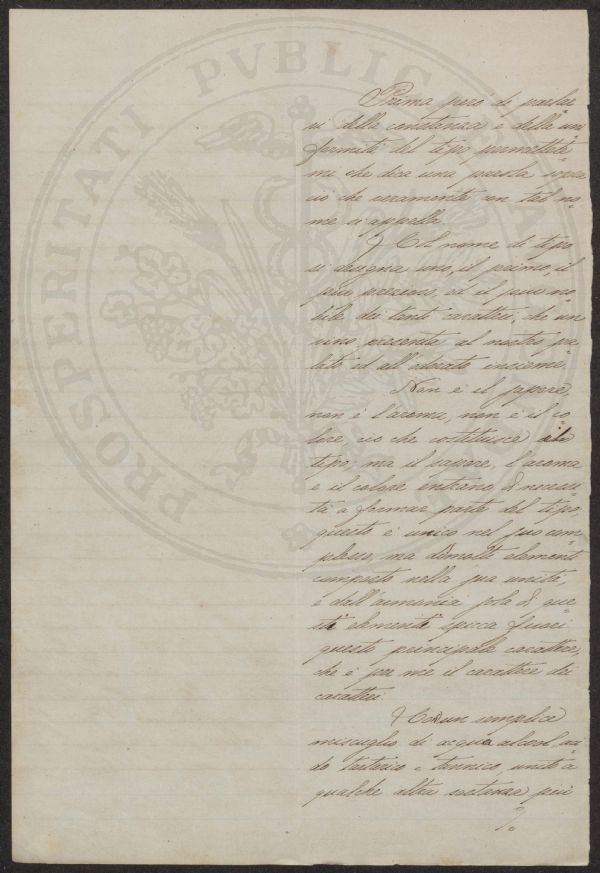 PROSPERITATI PVBLICAE
Prima però di parlar
si della constanza e della uni
formità del tipo permettete
mi che dica una parola sopra
ciò che veramente con tal no
me si appella.
Col nome di tipo
si designa uno, il primo, il
più prezioso, ed il più no
bile dei tanti caratteri, che un
vino presenta al nostro pa
lato ed all'odorato insieme.
Non è il sapore,
non è l'aroma, non è il co
lore, ciò che costituisce il
tipo; ma il sapore, l'aroma
e il colore entrano di necessi
tà a formar parte del tipo,
questo è unico nel suo com
plesso, ma di molti elementi
composto nella sua unità,
e dall'armonia sola di que
sti elementi spicca fuori
questo principale carattere,
che è per me il carattere dei
caratteri.
Con un semplice
miscuglio di acqua alcool, aci
do tartarico e tannico, unito a
qualche altra sostanza più